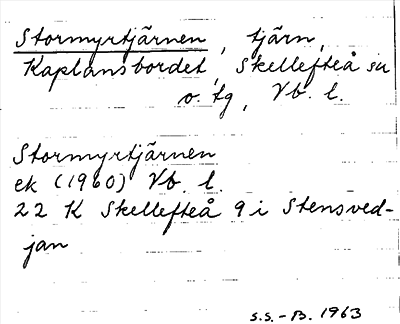 Stormyrtjärnen, tjärn,
Kaplansbordet, Skellefteå sn
o. tg, Vb. l.
Stormyrtjärnen
ek (1960) Vb. l.
22 K Skellefteå 9 i Stensved-
jan
S.S.-B. 1963